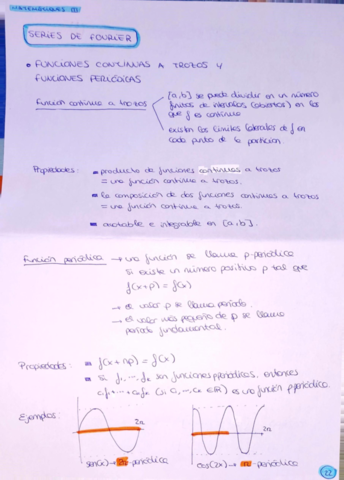 MATEMÁTICAS (I)
SERIES DE FOURIER
• FUNCIONES CONTINUAS A TROZOS Y
FUNCIONES PERIÓDICAS
Función continua a trozos
[a,b] se puede dividir en un número
finitos de intervalos (abiertos) en los
que f es continua
existen los límites laterales de f en
cada punto de la partición.
Propiedades: producto de funciones continuas a trozos
= una función continua a trozos.
la composición de dos funciones continuas a trozos
= una función continua a trozos
acotable e integrable en [a,b].
Función periódica → una función se llama p-periódica
si existe un número positivo p tal que
f(x+p) = f(x)
→ el valor p se llama periodo.
→ el valor más pequeño de p se llama
periodo fundamental.
Propiedades: f(x+np) = f(x)
si f₁, ..., fₖ son funciones p-periódicas, entonces
c₁f₁+...+cₖfₖ (si c₁, ..., cₖ ∈ ℝ) es una función p-periódica.
Ejemplos:
2π
2π
sen(x) → 2π-periódica
cos(2x) → π-periódica
22